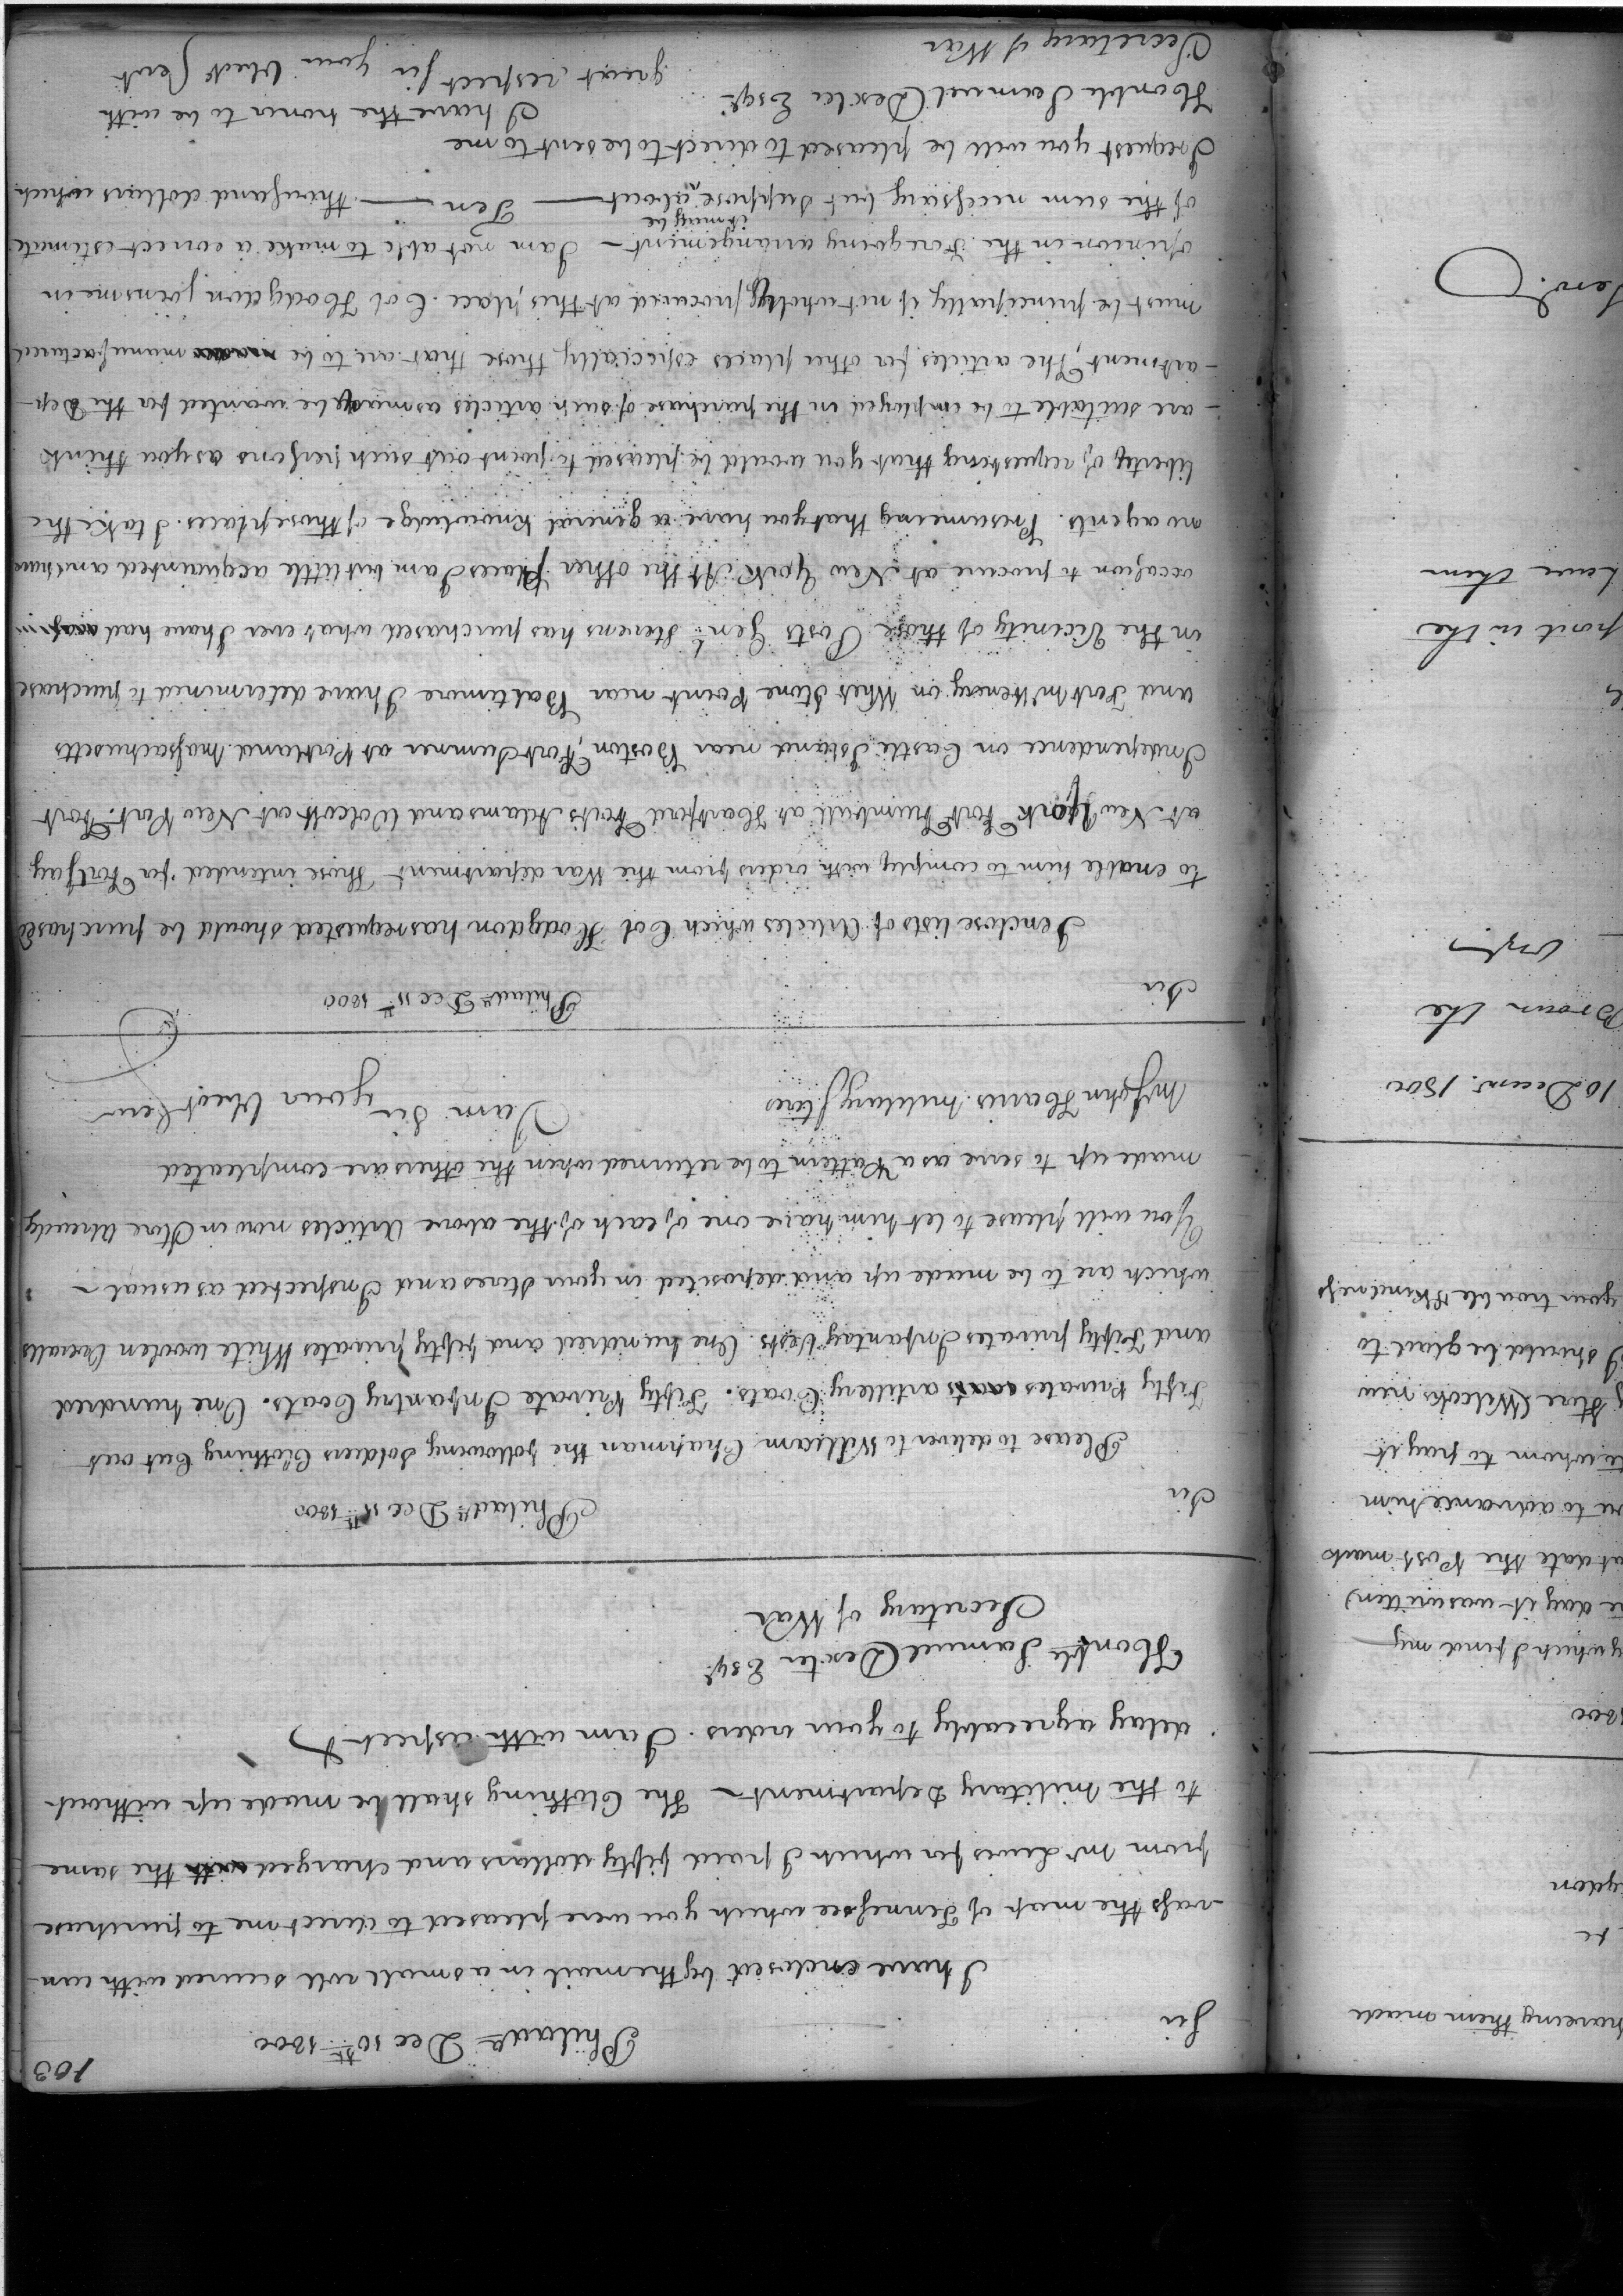 103
Philad.ª Dec 10th 1800
Sir
I have enclosed by the mail in a small roll secured with can
-vass the map of Tennessee which you were pleased to direct me to purchase
from Mr Lewis for which I paid fifty dollars and charged the same
to the military Department - The Clothing shall be made up without
delay agreeably to your orders. I am with respect
Honble Samuel Dexter Esqr
Secretary of War
Philad.ª Dec 11th 1800
Sir
Please to deliver to William Chapman the following Soldiers Clothing Cut out
Fifty Privates artillery Coats. Fifty Private Infantry Coats. One hundred
and Fifty privates Infantay Vests. One hundred and fifty privates White woolen Overalls
which are to be made up and deposited in your Stores and Inspected as usual -
You will please to let him have one of each of the above Articles now in Store already
made up to serve as a Pattern to be returned when the others are compleated
I am Sir
Mr John Harris Military Stores
your Obedt Serv
Philad.ª Dec 11th 1800
Sir
I enclose lists of Articles which Col Hodgdon has requested should be purchased
to enable him to comply with orders from the War department Those intended for Fort Jay
at New York Fort Trumbull at Hartford Forts Adams and Wolcott at New Port. Fort
Independence on Castle Island near Boston, Fort Sumner at Portland Massachusetts
and Fort McHenry on Whet Stone Point near Baltimore I have determined to purchase
in the Vicinity of those Posts Genl Stevens has purchased what ever I have had
occasion to procure at New York At the other Places I am but little acquainted and have
no agents. Presumeing that you have a general Knowledge of those places I take the
liberty of requesting that you would be pleased to point out such persons as you think
are suitable to be employed in the purchase of such articles as may be wanted for the Dep-
-artment, The articles for other places especially those that are to be manufactured
must be principally if not wholly procured at this place. Col Hodgdon joins me in
opinion in the Foregoing arrangement - I am not able to make a correct estimate
of the sum necessary but suppose it may be about Ten thousand dollars which
I request you will be pleased to direct to be sent to me
I have the honor to be with
Honble Samuel Dexter Esqr
great respect Sir your Obedt Servt
Secretary of War
having them made
1800
by which I find my
day it was written)
date the Post mark
to advance him
to whom to pay it
Store (Wilcocks new
I should be glad to
your trouble & Kindness
10 Decem. 1800
Brown the
port in the
have them
Serv.